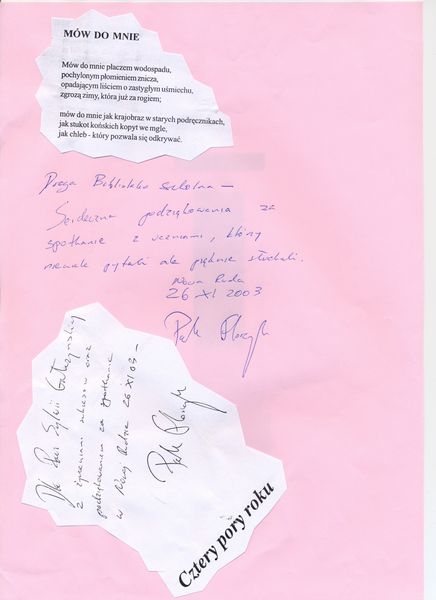 MÓW DO MNIE
Mów do mnie płaczem wodospadu,
pochylonym płomieniem znicza,
opadającym liściem o zastygłym uśmiechu,
zgrozą zimy, która już za rogiem;
mów do mnie jak krajobraz w starych podręcznikach,
jak stukot końskich kopyt we mgle,
jak chleb - który pozwala się odkrywać.
Droga Biblioteko Szkolna —
Serdeczne podziękowania za
spotkanie z uczniami, którzy
niewiele pytali ale pięknie słuchali.
Nowa Ruda
26 XI 2003
Dla Pani Sylwii
z życzeniami sukcesów oraz
podziękowaniem za spotkanie
w Nowej Rudzie 26 XI 03 —
Cztery pory roku